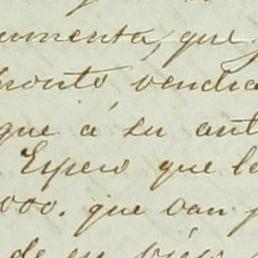 umenta, que
pronto vendra
que á su ant
Espero que le
000. que van p
de su